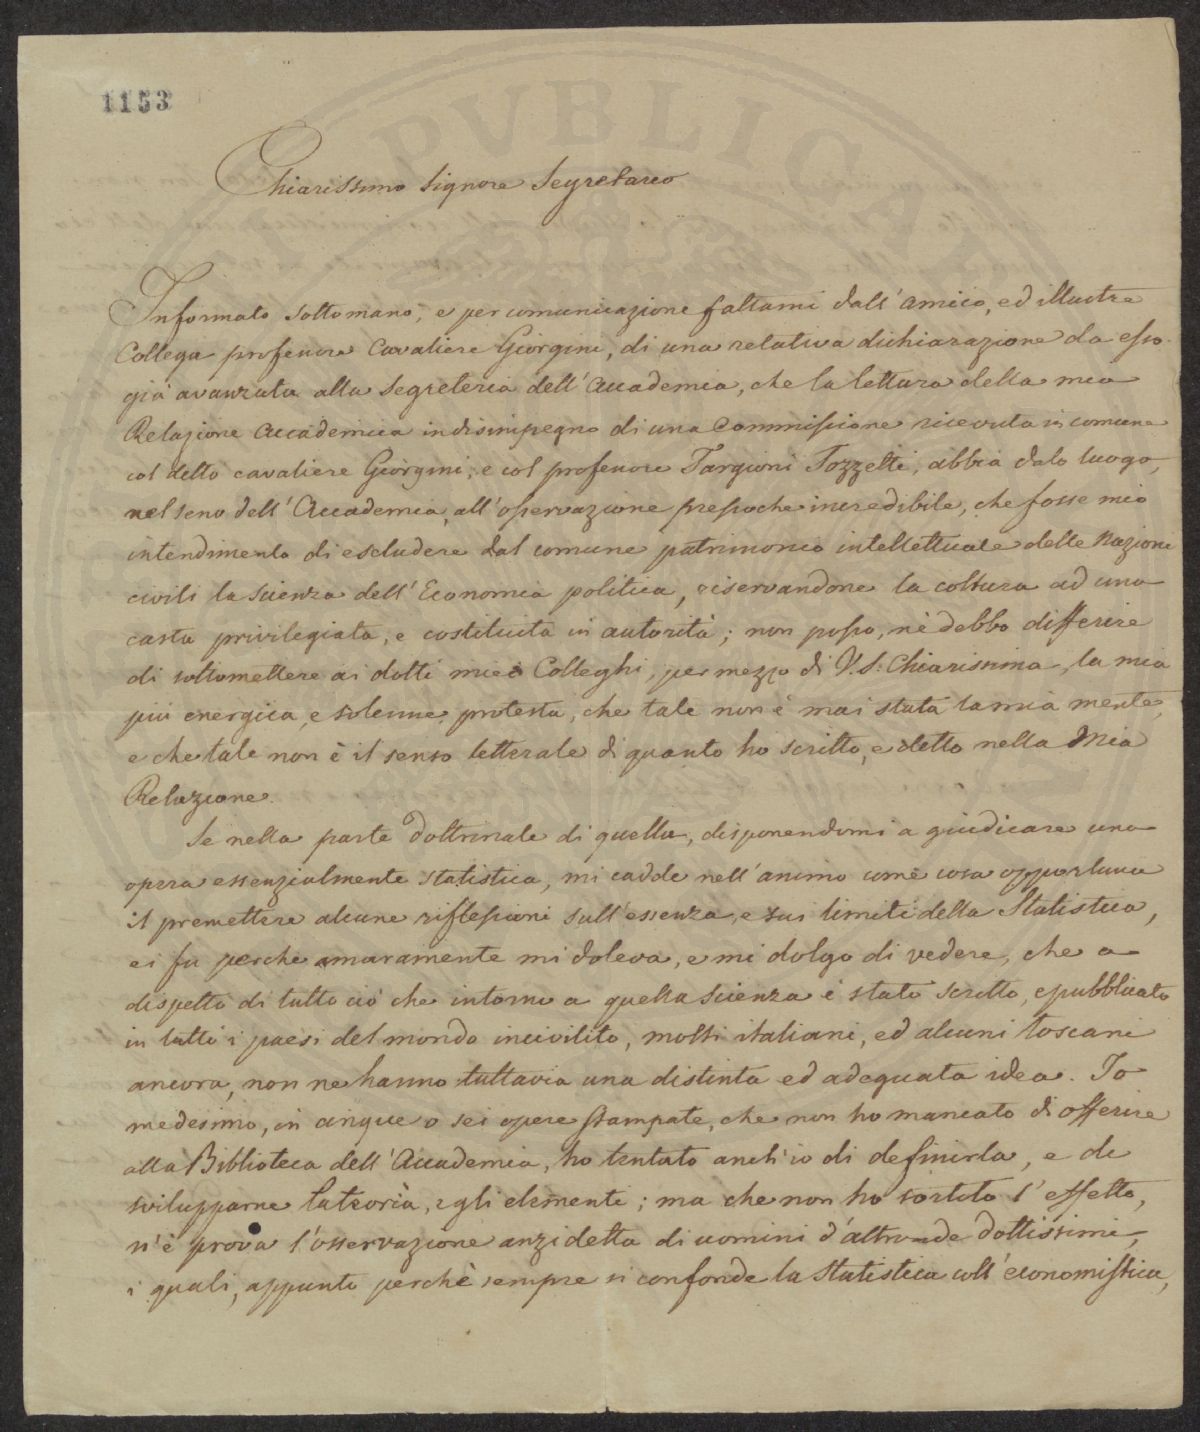 1153
PVBLICAE
Chiarissimo Signore Segretario
Informato sottomano, e per comunicazione fattami dall'amico, ed illustre
Collega professore Cavaliere Giorgini, di una relativa dichiarazione da esso
già avanzata alla Segreteria dell'Accademia, che la lettura della mia
Relazione Accademica in disimpegno di una Commissione ricevuta in comune
col detto cavaliere Giorgini, e col professore Targioni Tozzetti, abbia dato luogo,
nel seno dell'Accademia, all'osservazione pressoche incredibile, che fosse mio
intendimento di escludere dal comune patrimonio intellettuale delle Nazioni
civili la scienza dell'Economia politica, riservandone la coltura ad una
casta privilegiata, e costituita in autorità; non posso, nè debbo differire
di sottomettere ai dotti miei Colleghi, per mezzo di V.S. Chiarissima, la mia
più energica, e solenne protesta, che tale non è mai stata la mia mente,
e che tale non è il senso letterale di quanto ho scritto, e detto nella mia
Relazione.
Se nella parte dottrinale di quella, disponendomi a giudicare una
opera essenzialmente statistica, mi cadde nell'animo come cosa opportuna
il premettere alcune riflessioni sull'essenza, e sui limiti della Statistica,
ei fu perche amaramente mi doleva, e mi dolgo di vedere, che a
dispetto di tutto ciò che intorno a quella scienza è stato scritto, e pubblicato
in tutti i paesi del mondo incivilito, molti italiani, ed alcuni toscani
ancora, non ne hanno tuttavia una distinta ed adeguata idea. Io
medesimo, in cinque o sei opere stampate, che non ho mancato di offerire
alla Biblioteca dell'Accademia, ho tentato anch'io di definirla, e di
svilupparne la teoria, e gli elementi; ma che non ho sortito l'effetto,
n'è prova l'osservazione anzidetta di uomini d'altronde dottissimi,
i quali, appunto perchè sempre si confonde la Statistica coll'economistica,